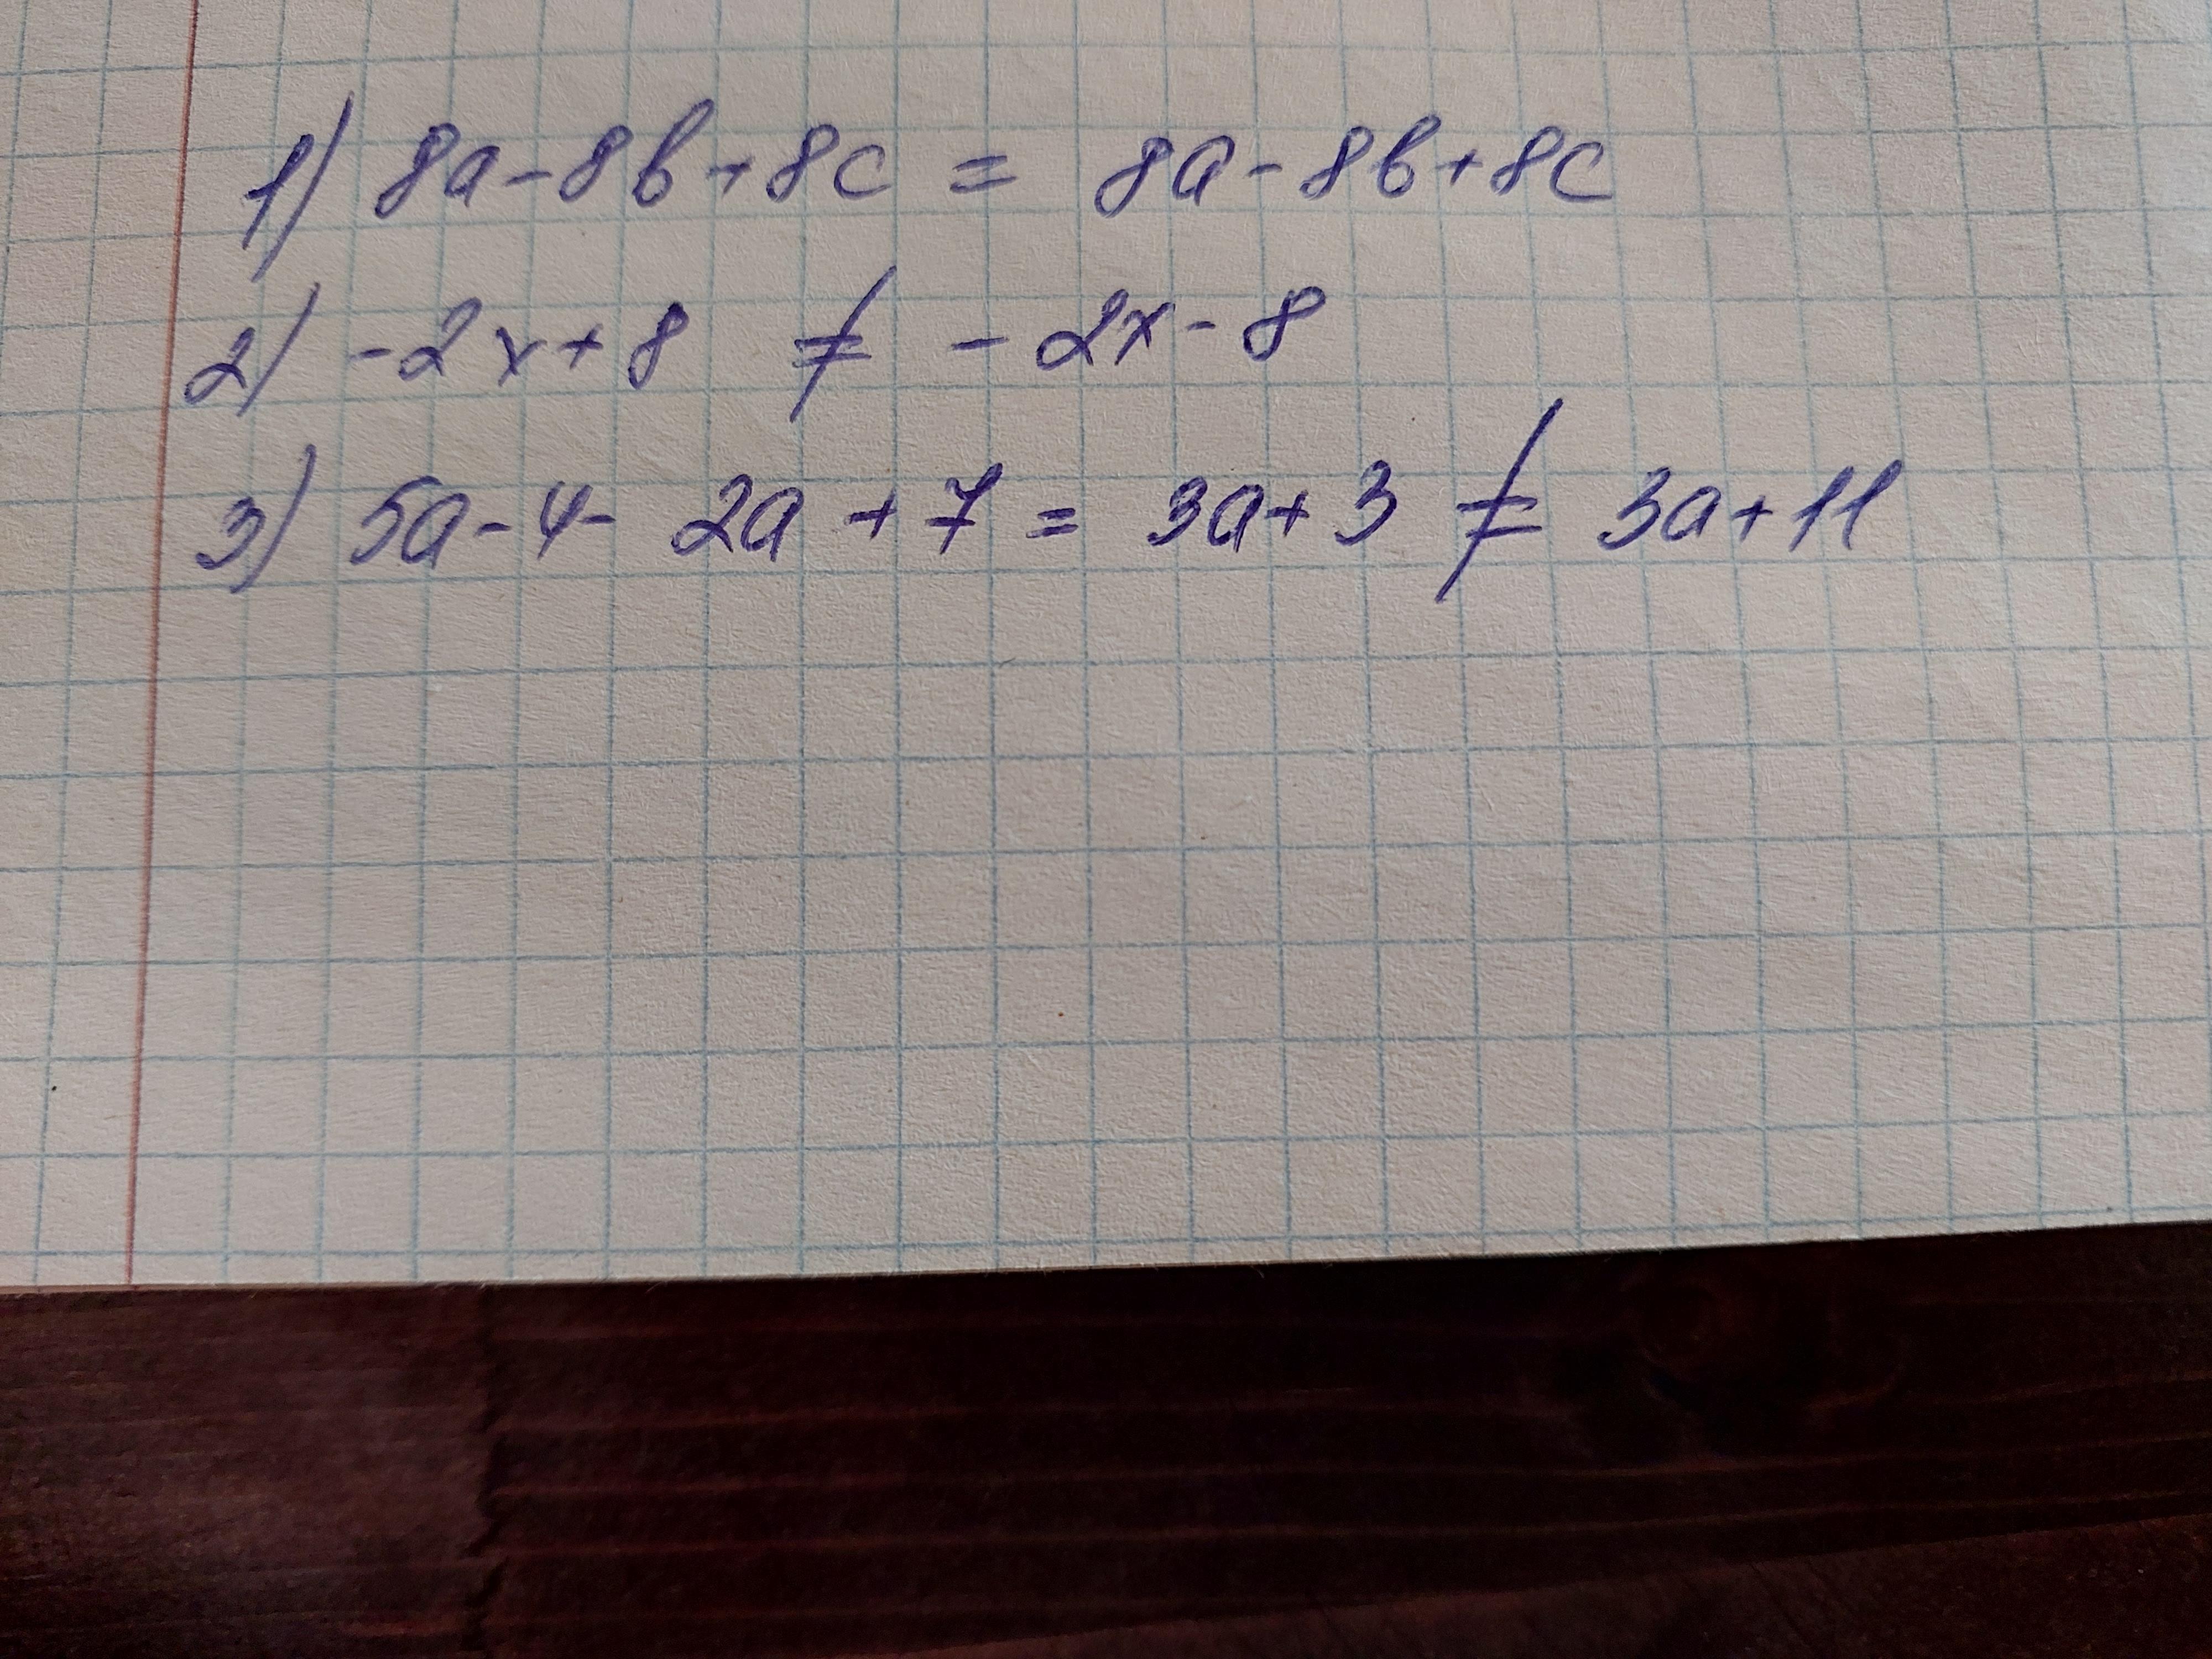 1) 8a - 8b + 8c = 8a - 8b + 8c
2) - 2x + 8 ≠ - 2x - 8
3) 5a - 4 - 2a + 7 = 3a + 3 ≠ 3a + 11